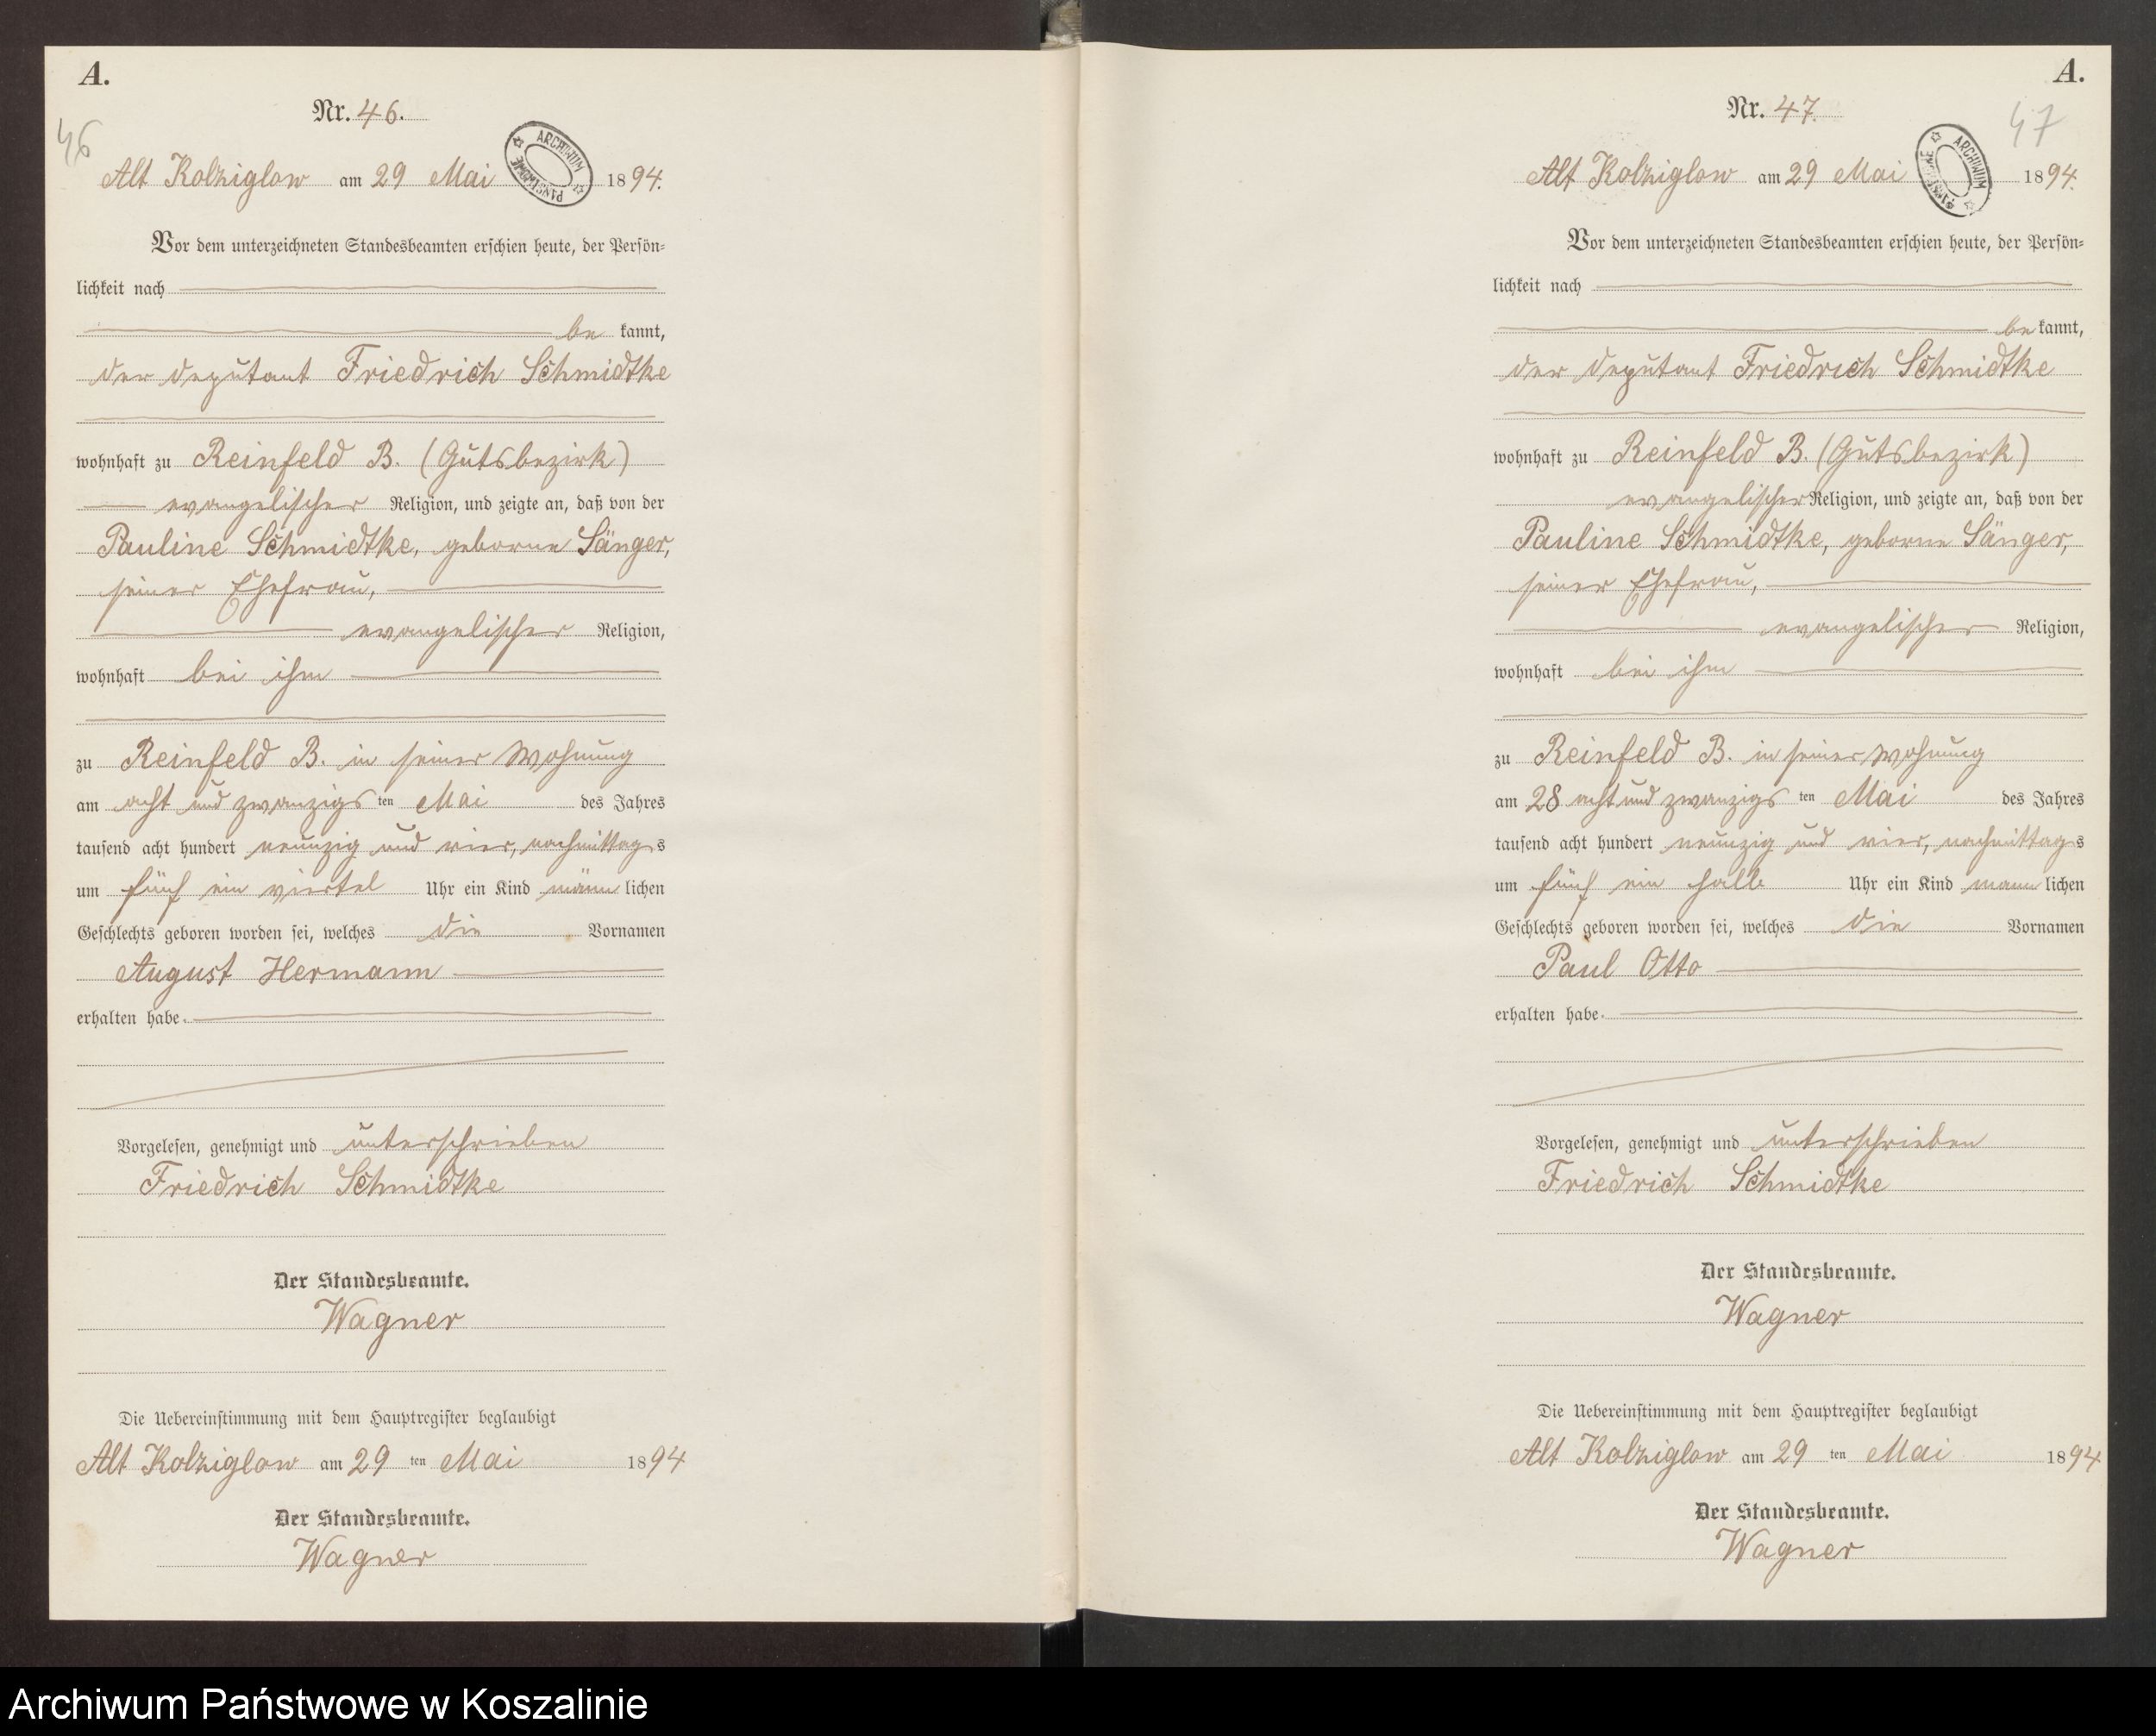 A.
Nr. 46.
46
ARCHIWUM PAŃSTWOWE
Alt Kolziglow am 29 Mai 1894.
Vor dem unterzeichneten Standesbeamten erschien heute, der Persön=
lichkeit nach
be kannt,
der Deputant Friedrich Schmidtke
wohnhaft zu Reinfeld B. (Gutsbezirk)
evangelischer Religion, und zeigte an, daß von der
Pauline Schmidtke, geborne Sänger,
seiner Ehefrau,
evangelischer Religion,
wohnhaft bei ihm
zu Reinfeld B. in seiner Wohnung
am acht und zwanzigs ten Mai des Jahres
tausend acht hundert neunzig und vier, nachmittags
um fünf ein viertel Uhr ein Kind männ lichen
Geschlechts geboren worden sei, welches die Vornamen
August Hermann
erhalten habe.
Vorgelesen, genehmigt und unterschrieben
Friedrich Schmidtke
Der Standesbeamte.
Wagner
Die Uebereinstimmung mit dem Hauptregister beglaubigt
Alt Kolziglow am 29 ten Mai 1894
Der Standesbeamte.
Wagner
A.
Nr. 47.
47
ARCHIWUM PAŃSTWOWE
Alt Kolziglow am 29 Mai 1894.
Vor dem unterzeichneten Standesbeamten erschien heute, der Persön=
lichkeit nach
be kannt,
der Deputant Friedrich Schmidtke
wohnhaft zu Reinfeld B. (Gutsbezirk)
evangelischer Religion, und zeigte an, daß von der
Pauline Schmidtke, geborne Sänger,
seiner Ehefrau,
evangelischer Religion,
wohnhaft bei ihm
zu Reinfeld B. in seiner Wohnung
am 28 acht und zwanzigs ten Mai des Jahres
tausend acht hundert neunzig und vier, nachmittags
um fünf ein halb Uhr ein Kind männ lichen
Geschlechts geboren worden sei, welches die Vornamen
Paul Otto
erhalten habe.
Vorgelesen, genehmigt und unterschrieben
Friedrich Schmidtke
Der Standesbeamte.
Wagner
Die Uebereinstimmung mit dem Hauptregister beglaubigt
Alt Kolziglow am 29 ten Mai 1894
Der Standesbeamte.
Wagner
Archiwum Państwowe w Koszalinie